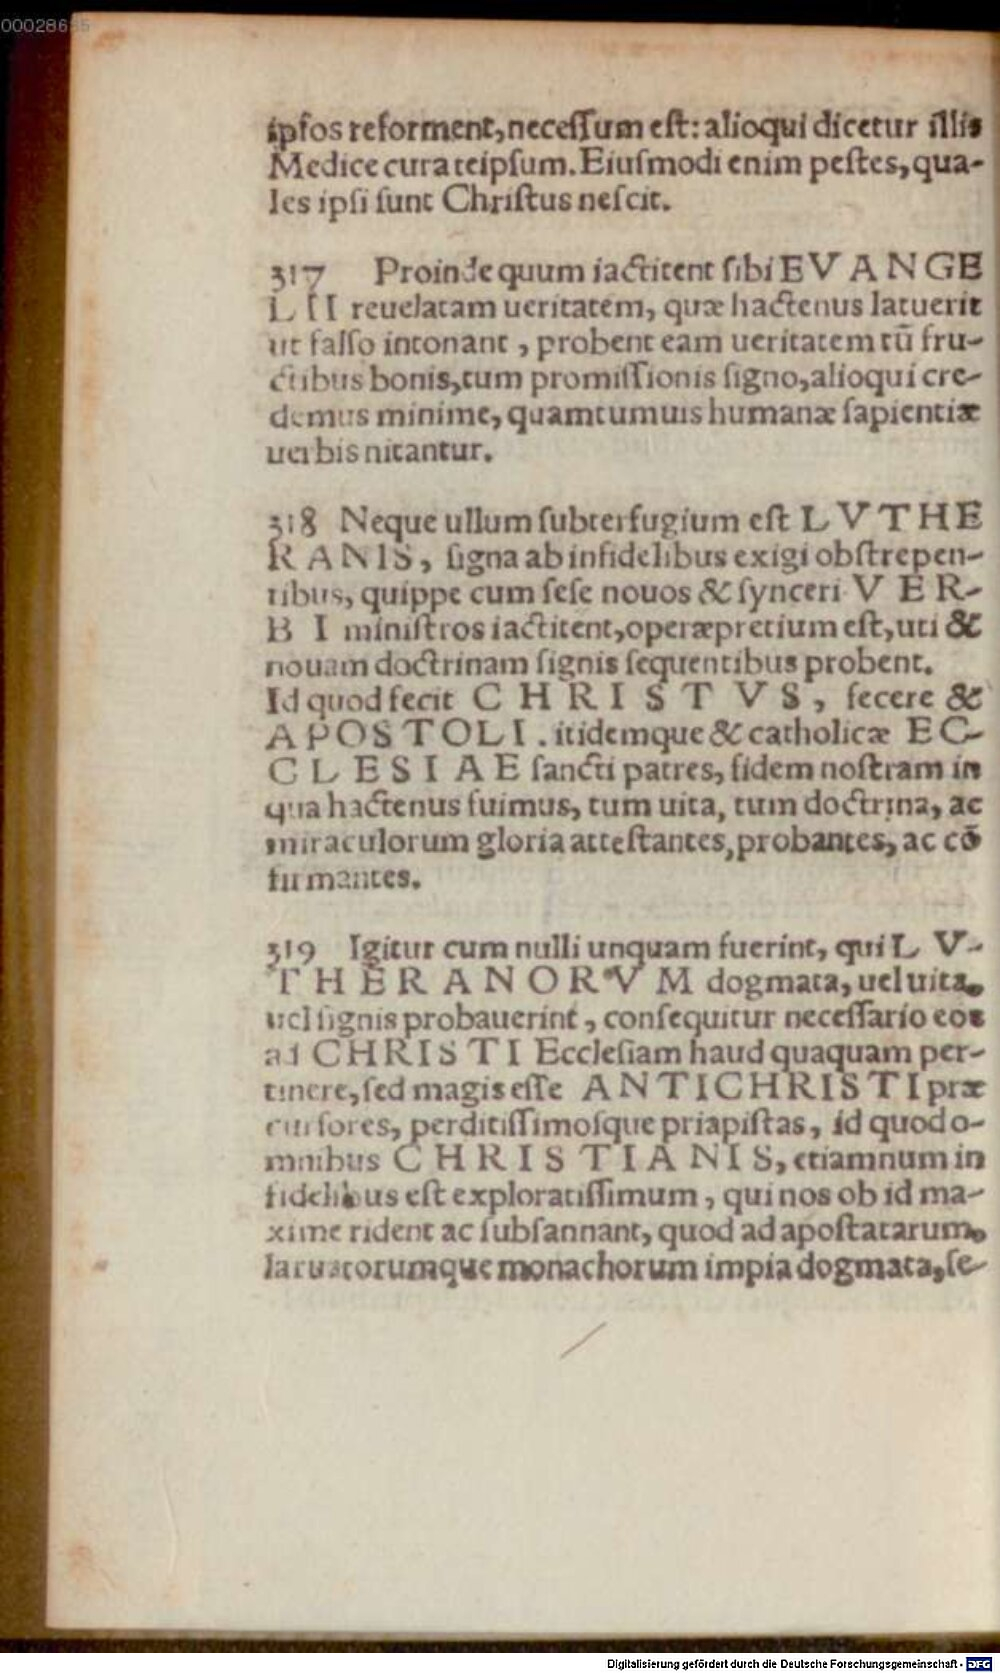 00028635
ipſos reforment, neceſſum eſt: alioqui dicetur illis
Medice cura teipſum. Eiuſmodi enim peſtes, qua-
les ipſi ſunt Chriſtus neſcit.
317 Proinde quum iactitent ſibi EVANGE
LII reuelatam ueritatem, quæ hactenus latuerit
ut falſo intonant, probent eam ueritatem tū fru-
ctibus bonis, tum promiſſionis ſigno, alioqui cre-
demus minime, quamtumuis humanæ ſapientiæ
uerbis nitantur.
318 Neque ullum ſubterfugium eſt LVTHE
RANIS, ſigna ab infidelibus exigi obſtrepen-
tibus, quippe cum ſeſe nouos & ſynceri VER-
BI miniſtros iactitent, operæpretium eſt, uti &
nouam doctrinam ſignis ſequentibus probent.
Id quod fecit CHRISTVS, fecere &
APOSTOLI. itidemque & catholicæ EC-
CLESIAE ſancti patres, fidem noſtram in
qua hactenus fuimus, tum uita, tum doctrina, ac
miraculorum gloria atteſtantes, probantes, ac cō
firmantes.
319 Igitur cum nulli unquam fuerint, qui LV-
THERANORVM dogmata, uel uita,
uel ſignis probauerint, conſequitur neceſſario eos
ad CHRISTI Eccleſiam haud quaquam per-
tinere, ſed magis eſſe ANTICHRISTI præ
curſores, perditiſſimoſque priapiſtas, id quod o-
mnibus CHRISTIANIS, etiamnum in
fidelibus eſt exploratiſſimum, qui nos ob id ma-
xime rident ac ſubſannant, quod ad apoſtatarum,
laruatorumque monachorum impia dogmata, ſe-
Digitalisierung gefördert durch die Deutsche Forschungsgemeinschaft - DFG